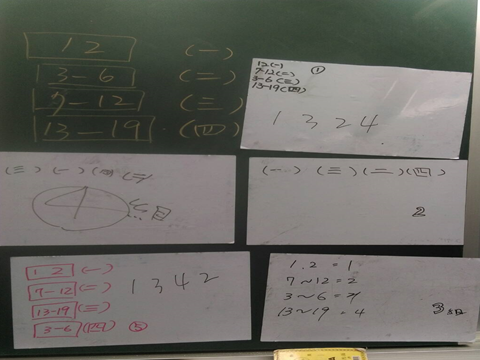 1 2 (一)
3-6 (二)
7-12 (三)
13-19 (四)
12(一) ①
7-12(二)
3-6(三)
13-19(四)
1 3 2 4
(三)(一)(四)(二)
4 組
(一) (三)(二)(四)
2
1 2 (一)
7-12 (二)
13-19 (三)
3-6 (四) ⑤
1 3 4 2
1.2 = 1
7~12 = 2
3~6 =
13~19 = 4
3組